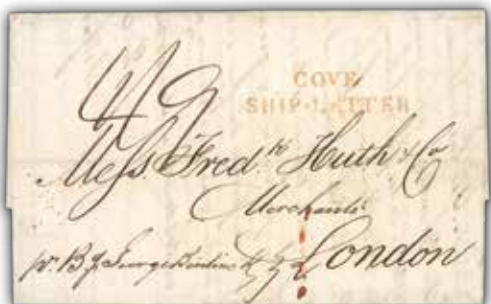 4/9
COVE
SHIP-LETTER
Mess Fred.k Huth & Co
Merchants
London